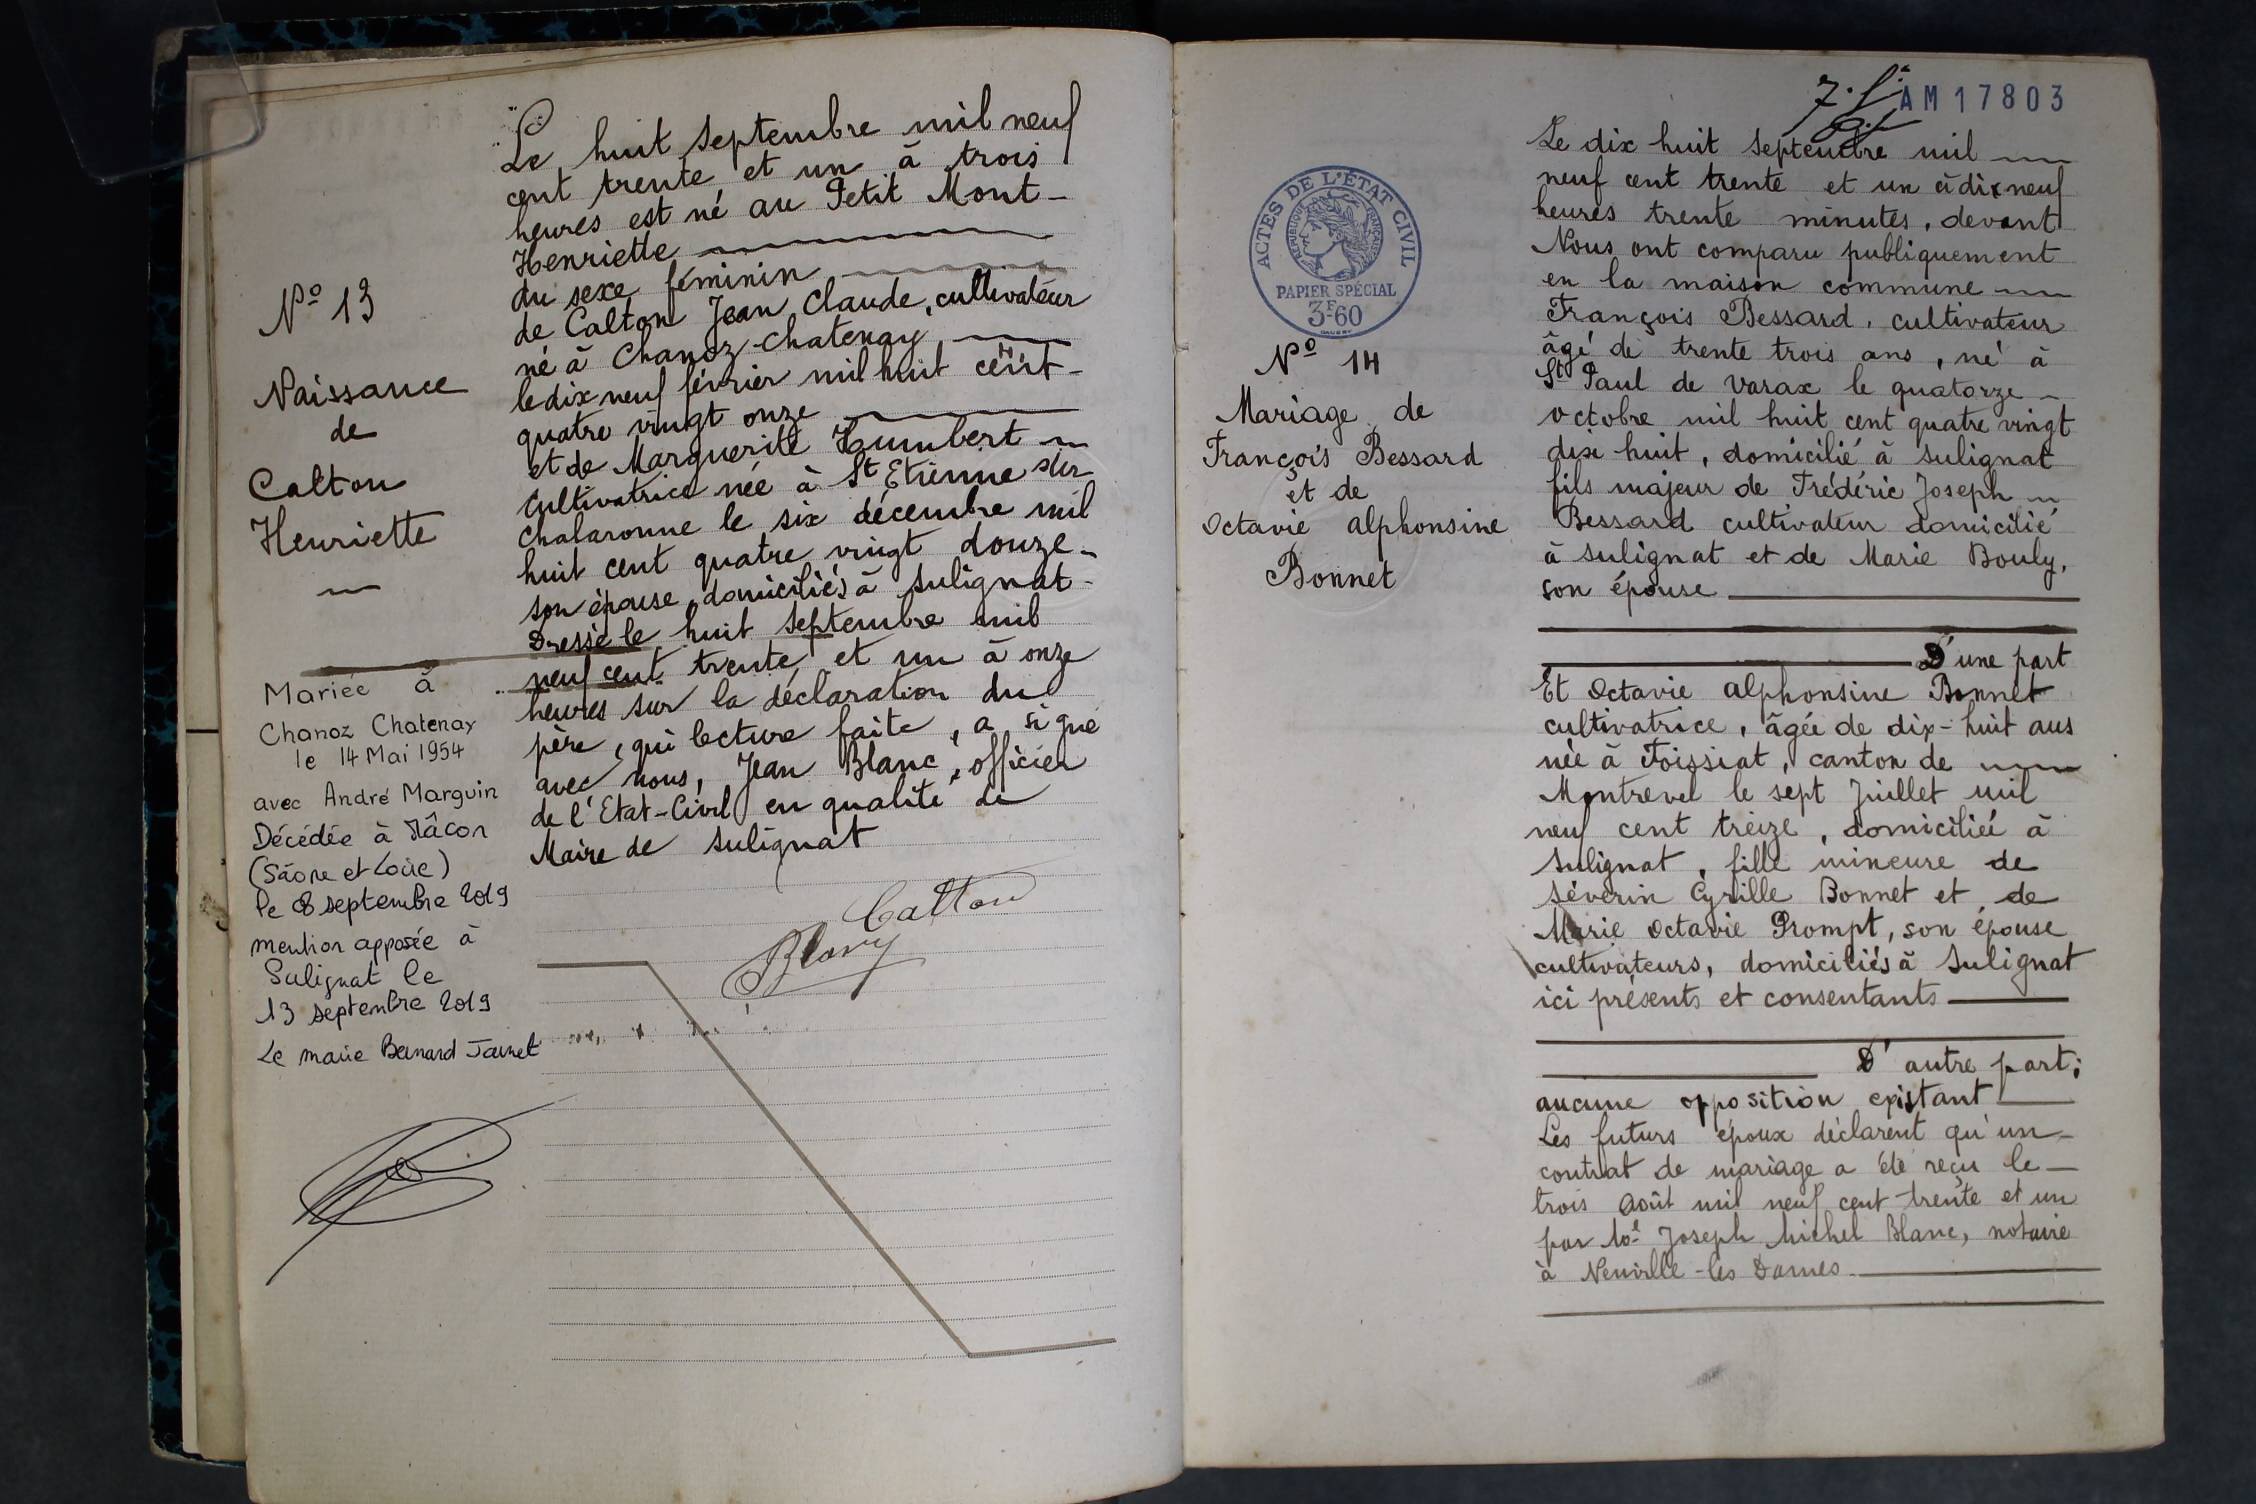 Nº 13
Naissance
de
Calton
Henriette
Mariée à
Chanoz Chatenay
le 14 Mai 1954
avec André Marguin
Décédée à Mâcon
(Sâone et Loire)
le 08 septembre 2019
mention apposée à
Sulignat le
13 septembre 2019
Le maire Bernard
Le huit septembre mil neuf
cent trente et un à trois
heures est né au Petit Mont-
Henriette
du sexe féminin
de Calton Jean Claude, cultivateur
né à Chanoz-Chatenay
le dix neuf février mil huit cent-
quatre vingt onze
et de Marguerite Humbert
cultivatrice née à St Etienne sur
Chalaronne le six décembre mil
huit cent quatre vingt douze-
son épouse, domiciliés à Sulignat-
Dressé le huit septembre mil
neuf cent trente et un à onze
heures sur la déclaration du
père, qui lecture faite, a signé
avec nous, Jean Blanc, officier
de l'Etat-Civil en qualité de
Maire de Sulignat
Calton
7. f.
AM17803
ACTES DE L'ÉTAT CIVIL
RÉPUBLIQUE FRANÇAISE
PAPIER SPÉCIAL
3F60
Nº 14
Mariage de
François Bessard
et de
Octavie alphonsine
Bonnet
Le dix huit septembre mil
neuf cent trente et un à dix neuf
heures trente minutes, devant
Nous ont comparu publiquement
en la maison commune
François Bessard, cultivateur
âgé de trente trois ans, né à
St Paul de Varax le quatorze
octobre mil huit cent quatre vingt
dix huit, domicilié à Sulignat
fils majeur de Frédéric Joseph
Bessard cultivateur domicilié
à Sulignat et de Marie Bouly,
son épouse
D'une part
Et Octavie alphonsine Bonnet
cultivatrice, âgée de dix-huit ans
née à Foissiat, canton de
Montrevel le sept Juillet mil
neuf cent treize, domiciliée à
Sulignat, fille mineure de
Séverin Cyrille Bonnet et de
Marie Octavie Prompt, son épouse
cultivateurs, domiciliés à Sulignat
ici présents et consentants
D'autre part;
aucune opposition existant
Les futurs époux déclarent qu'un-
contrat de mariage a été reçu le-
trois Août mil neuf cent trente et un
par Me Joseph Michel Blanc, notaire
à Neuville-les Dames